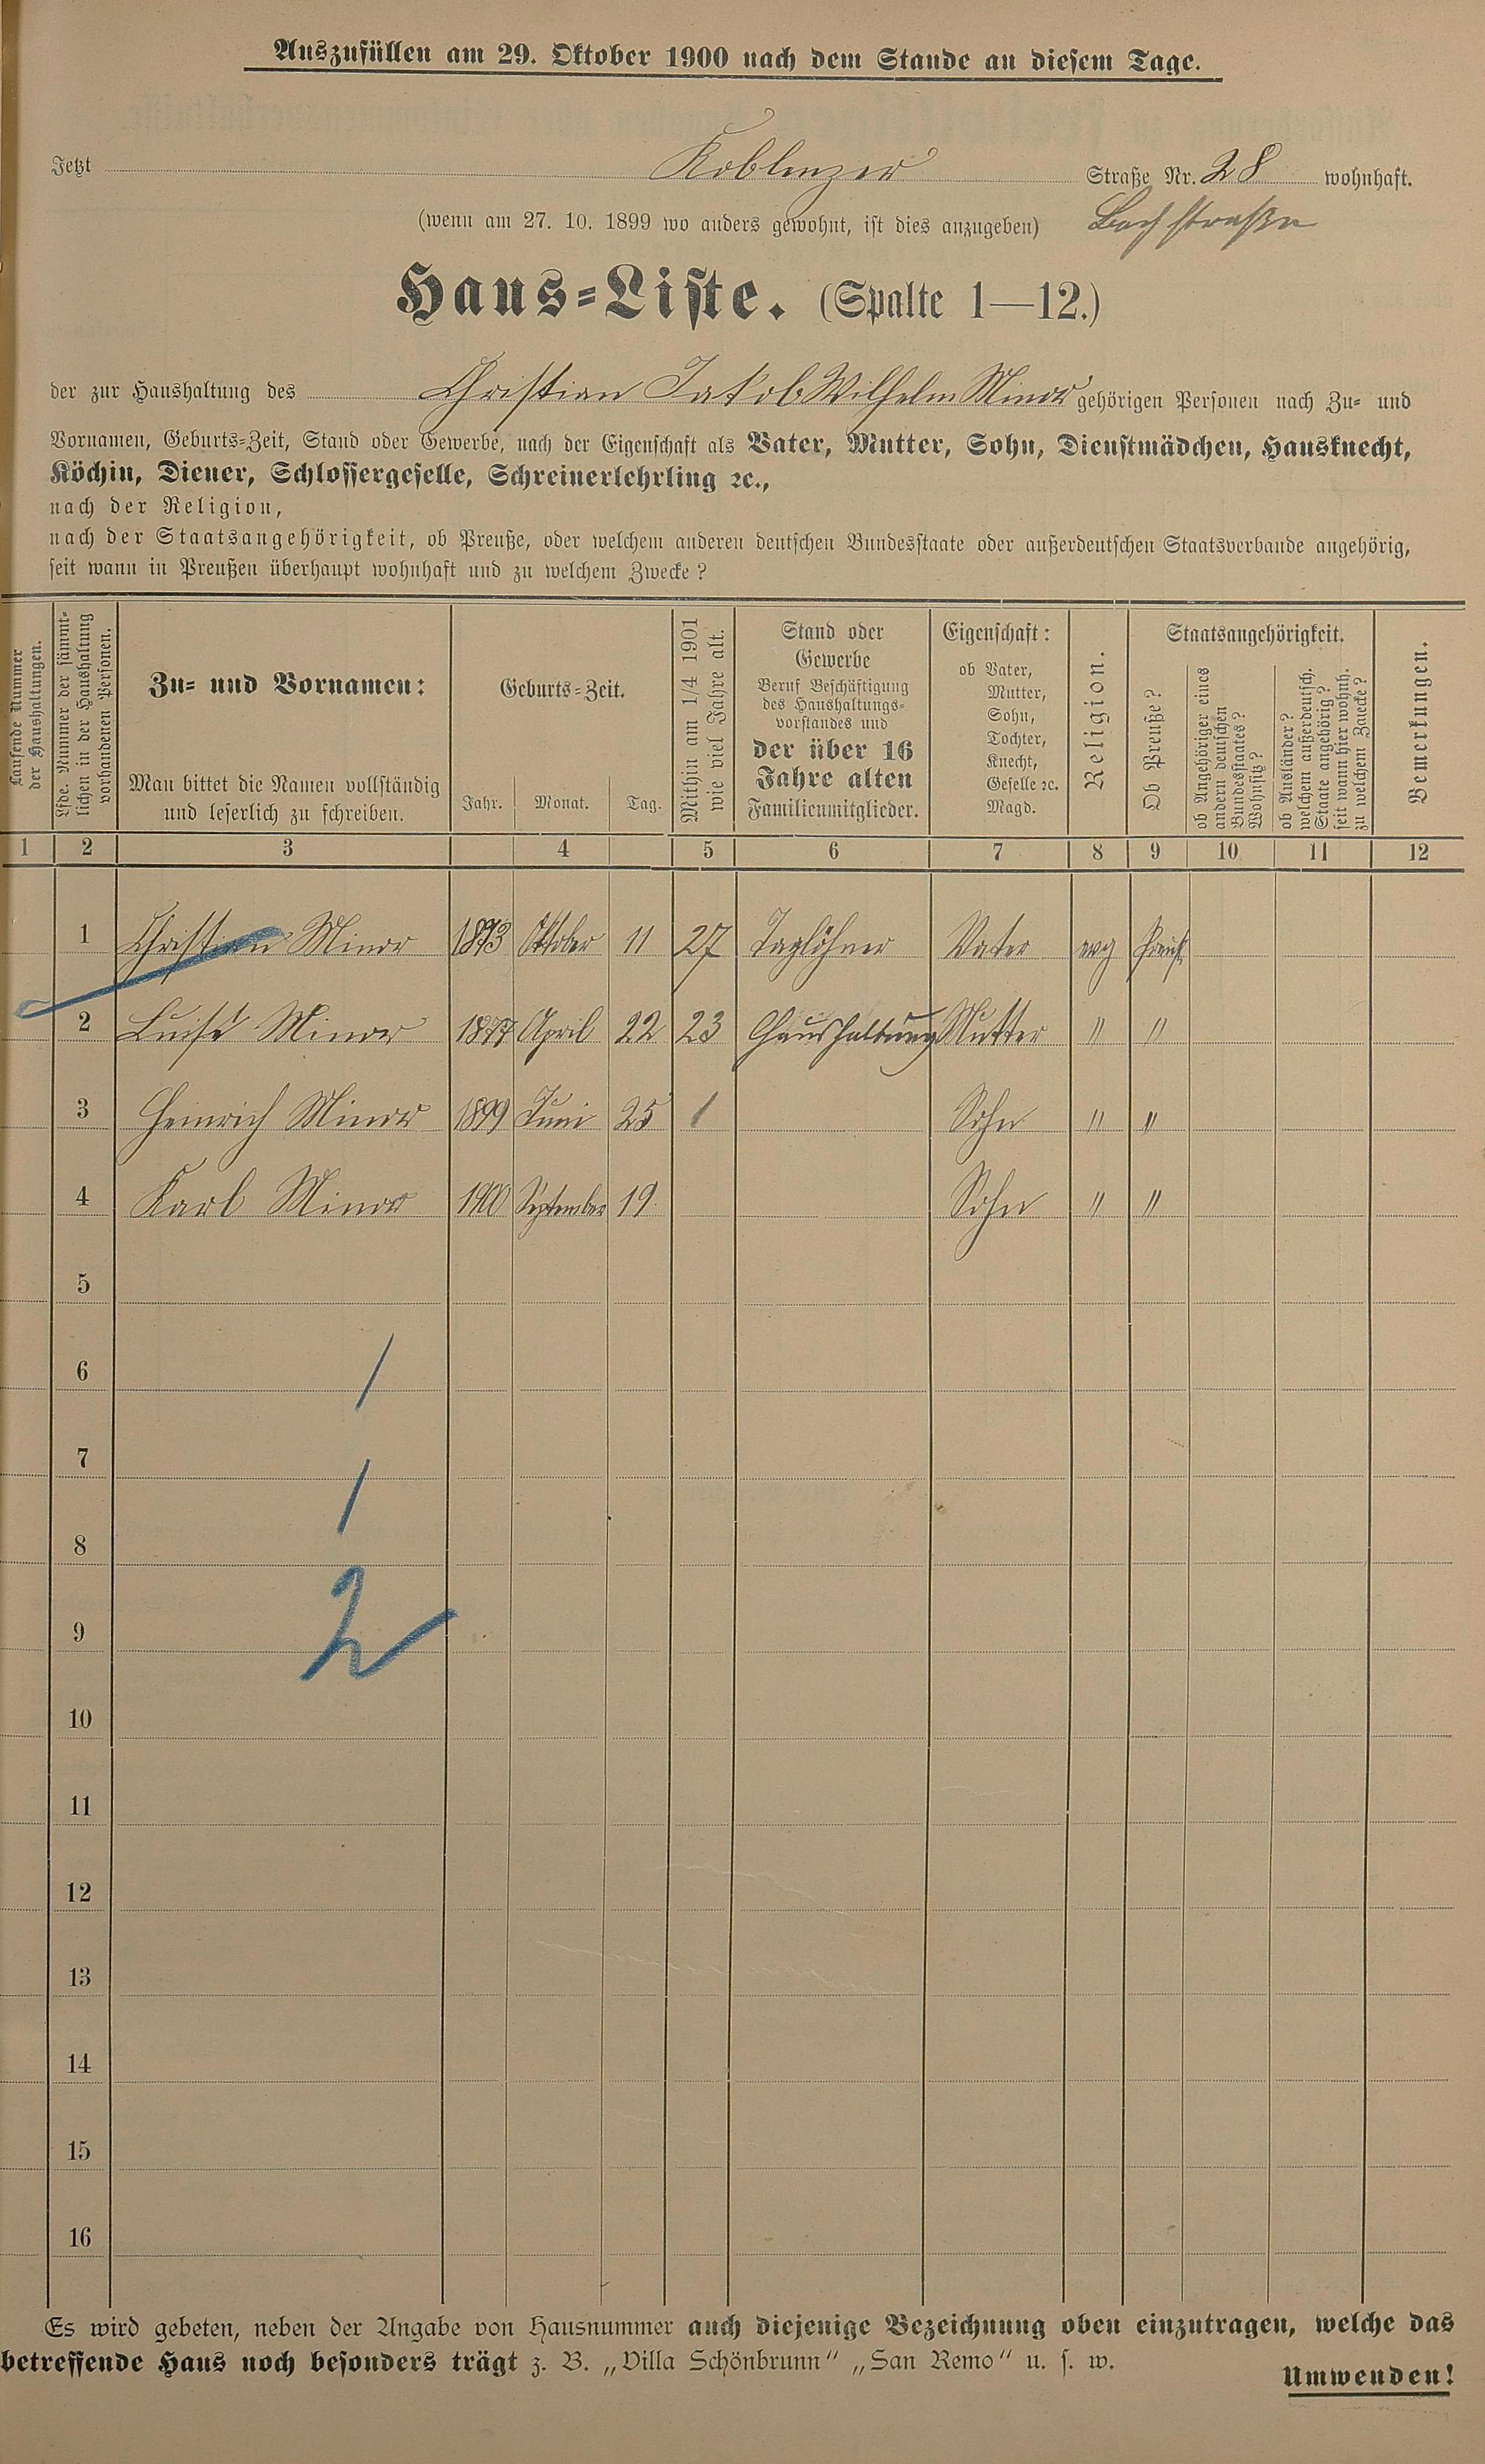 Auszufüllen am 29. Oktober 1900 nach dem Stande an diesem Tage.
Jetzt Koblenzer Straße Nr. 28 wohnhaft.
(wenn am 27. 10. 1899 wo anders gewohnt, ist dies anzugeben) Bachstraße
Haus-Liste. (Spalte 1—12.)
der zur Haushaltung des Christian Jakob Wilhelm Minor gehörigen Personen nach Zu- und
Vornamen, Geburts-Zeit, Stand oder Gewerbe, nach der Eigenschaft als Vater, Mutter, Sohn, Dienstmädchen, Hausknecht,
Köchin, Diener, Schlossergeselle, Schreinerlehrling ꝛc.,
nach der Religion,
nach der Staatsangehörigkeit, ob Preuße, oder welchem anderen deutschen Bundesstaate oder außerdeutschen Staatsverbande angehörig,
seit wann in Preußen überhaupt wohnhaft und zu welchem Zwecke?
Laufende Nummer
der Haushaltungen.
Lfde. Nummer der sämmt-
lichen in der Haushaltung
vorhandenen Personen.
Zu- und Vornamen:
Man bittet die Namen vollständig
und leserlich zu schreiben.
Geburts-Zeit.
Jahr. Monat. Tag.
Mithin am 1/4 1901
wie viel Jahre alt.
Stand oder
Gewerbe
Beruf Beschäftigung
des Haushaltungs-
vorstandes und
der über 16
Jahre alten
Familienmitglieder.
Eigenschaft:
ob Vater,
Mutter,
Sohn,
Tochter,
Knecht,
Geselle ꝛc.
Magd.
Religion.
Staatsangehörigkeit.
Ob Preuße?
ob Angehöriger eines
andern deutschen
Bundesstaates?
Wohnsitz?
ob Ausländer?
welchem außerdeutsch.
Staate angehörig?
seit wann hier wohnh.
zu welchem Zwecke?
Bemerkungen.
1 2 3 4 5 6 7 8 9 10 11 12
1 Christian Minor 1873 Oktober 11 27 Taglöhner Vater evg Preuß.
2 Luise Minor 1877 April 22 23 Haushaltung Mutter " "
3 Heinrich Minor 1899 Juni 25 1 Sohn " "
4 Karl Minor 1900 September 19 Sohn " "
5
6 /
7 /
8
9 2
10
11
12
13
14
15
16
Es wird gebeten, neben der Angabe von Hausnummer auch diejenige Bezeichnung oben einzutragen, welche das
betreffende Haus noch besonders trägt z. B. „Villa Schönbrunn" „San Remo" u. s. w.
Umwenden!